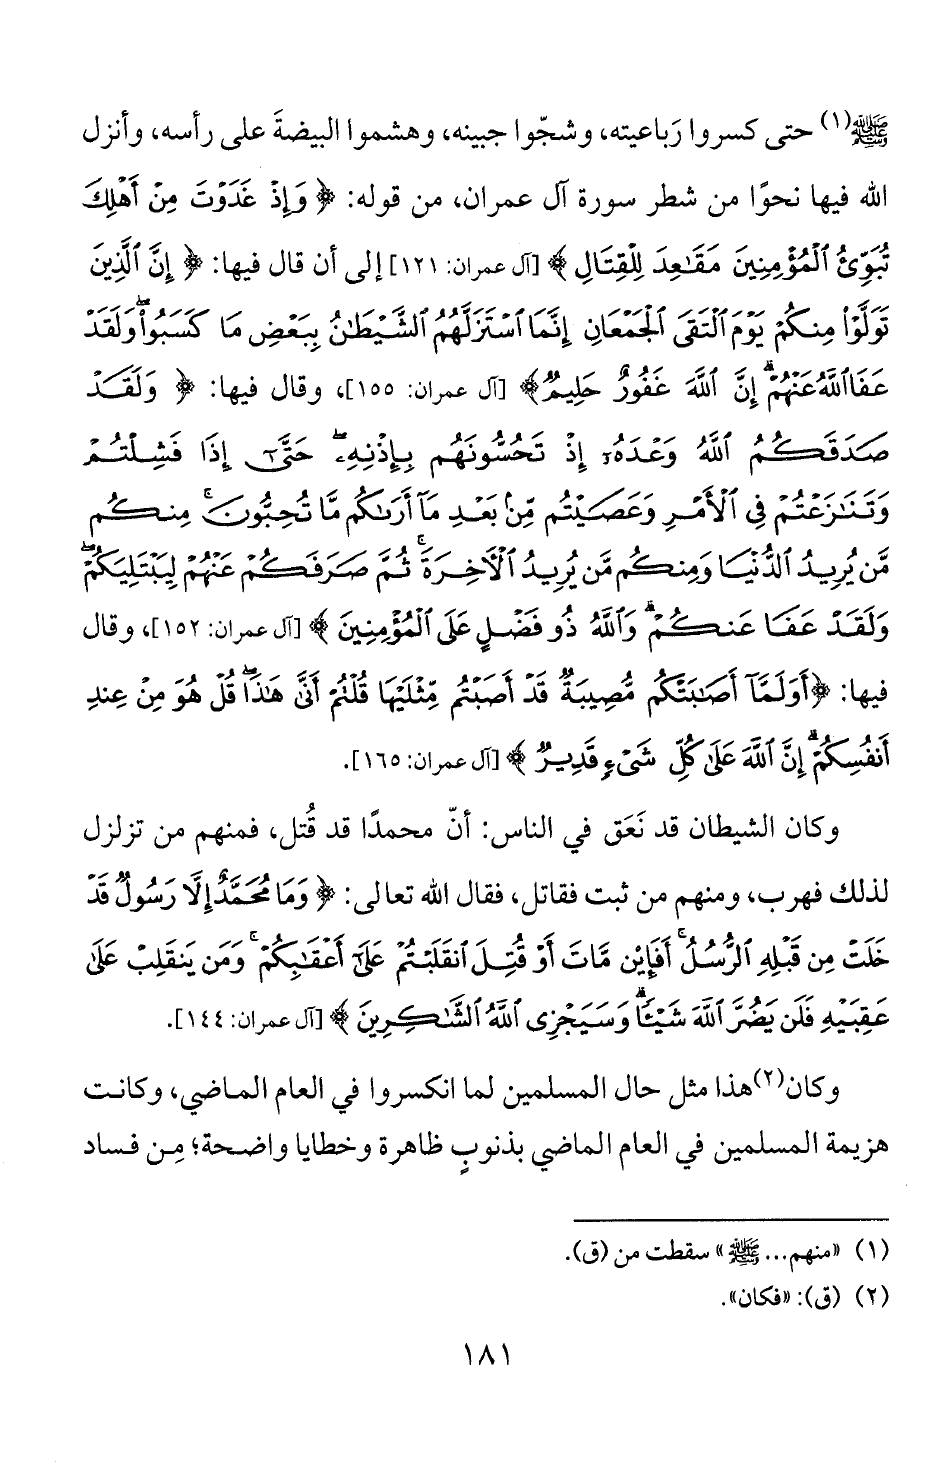 ﷺ(١) حتى كسروا رَباعيته، وشجّوا جبينه، وهشموا البيضةَ على رأسه، وأنزل
الله فيها نحوًا من شطر سورة آل عمران، من قوله: ﴿ وَإِذْ غَدَوْتَ مِنْ أَهْلِكَ
تُبَوِّئُ ٱلْمُؤْمِنِينَ مَقَٰعِدَ لِلْقِتَالِ ﴾ [آل عمران: ١٢١] إلى أن قال فيها: ﴿ إِنَّ ٱلَّذِينَ
تَوَلَّوْا۟ مِنكُمْ يَوْمَ ٱلْتَقَى ٱلْجَمْعَانِ إِنَّمَا ٱسْتَزَلَّهُمُ ٱلشَّيْطَٰنُ بِبَعْضِ مَا كَسَبُوا۟ ۖ وَلَقَدْ
عَفَا ٱللَّهُ عَنْهُمْ ۗ إِنَّ ٱللَّهَ غَفُورٌ حَلِيمٌ ﴾ [آل عمران: ١٥٥]، وقال فيها: ﴿ وَلَقَدْ
صَدَقَكُمُ ٱللَّهُ وَعْدَهُۥٓ إِذْ تَحُسُّونَهُم بِإِذْنِهِۦ ۖ حَتَّىٰٓ إِذَا فَشِلْتُمْ
وَتَنَٰزَعْتُمْ فِي ٱلْأَمْرِ وَعَصَيْتُم مِّنۢ بَعْدِ مَآ أَرَىٰكُم مَّا تُحِبُّونَ ۚ مِنكُم
مَّن يُرِيدُ ٱلدُّنْيَا وَمِنكُم مَّن يُرِيدُ ٱلْآخِرَةَ ۚ ثُمَّ صَرَفَكُمْ عَنْهُمْ لِيَبْتَلِيَكُمْ ۖ
وَلَقَدْ عَفَا عَنكُمْ ۗ وَٱللَّهُ ذُو فَضْلٍ عَلَى ٱلْمُؤْمِنِينَ ﴾ [آل عمران: ١٥٢]، وقال
فيها: ﴿أَوَلَمَّآ أَصَٰبَتْكُم مُّصِيبَةٌ قَدْ أَصَبْتُم مِّثْلَيْهَا قُلْتُمْ أَنَّىٰ هَٰذَا ۖ قُلْ هُوَ مِنْ عِندِ
أَنفُسِكُمْ ۗ إِنَّ ٱللَّهَ عَلَىٰ كُلِّ شَىْءٍ قَدِيرٌ ﴾ [آل عمران: ١٦٥].
وكان الشيطان قد نَعَق في الناس: أنّ محمدًا قد قُتل، فمنهم من تزلزل
لذلك فهرب، ومنهم من ثبت فقاتل، فقال الله تعالى: ﴿ وَمَا مُحَمَّدٌ إِلَّا رَسُولٌ قَدْ
خَلَتْ مِن قَبْلِهِ ٱلرُّسُلُ ۚ أَفَإِي۟ن مَّاتَ أَوْ قُتِلَ ٱنقَلَبْتُمْ عَلَىٰٓ أَعْقَٰبِكُمْ ۚ وَمَن يَنقَلِبْ عَلَىٰ
عَقِبَيْهِ فَلَن يَضُرَّ ٱللَّهَ شَيْـًٔا ۗ وَسَيَجْزِى ٱللَّهُ ٱلشَّٰكِرِينَ ﴾ [آل عمران: ١٤٤].
وكان(٢) هذا مثل حال المسلمين لما انكسروا في العام الماضي، وكانت
هزيمة المسلمين في العام الماضي بذنوبٍ ظاهرة وخطايا واضحة؛ مِن فساد
(١) «منهم... ﷺ» سقطت من (ق).
(٢) (ق): «فكان».
١٨١